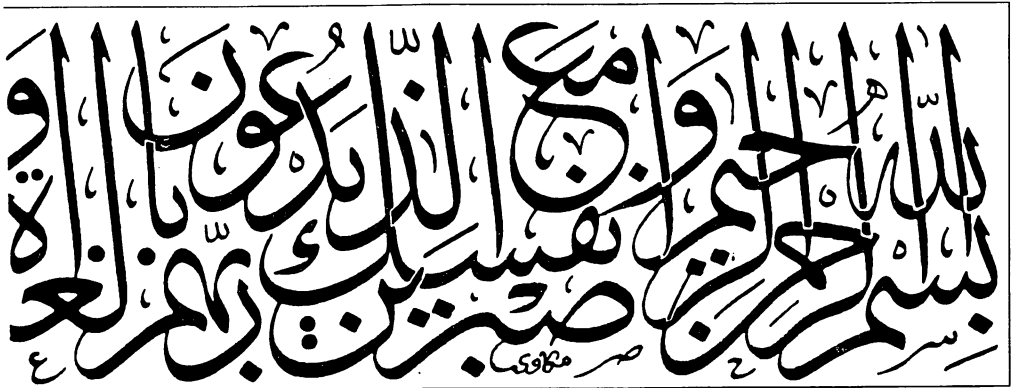 بسم الله الرحمن الرحيم واصبر نفسك مع الذين يدعون ربهم بالغداة و
مكاوى